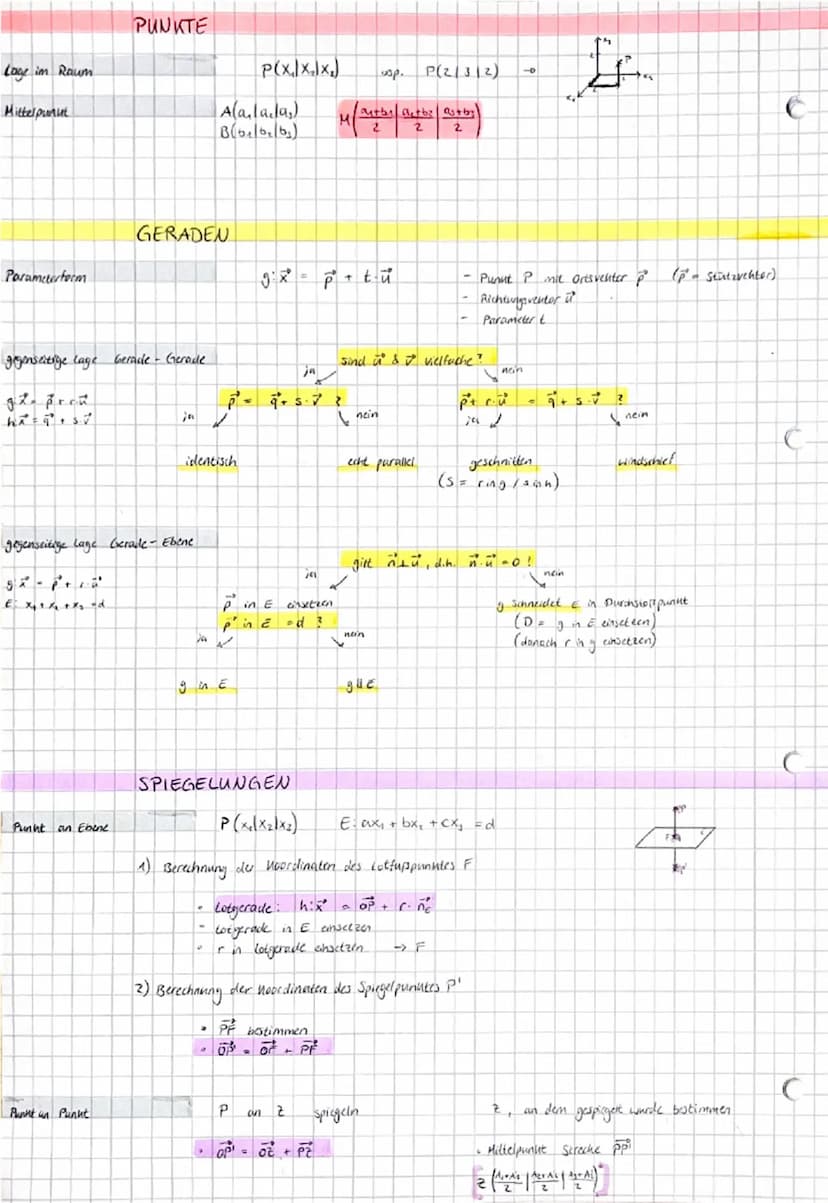 PUNKTE
Lage im Raum P(x₁|x₂|x₃) bsp. P(2|3|2) →
x₃
P
x₂
x₁
Mittelpunkt A(a₁|a₂|a₃) M(a₁+b₁/2 | a₂+b₂/2 | a₃+b₃/2)
B(b₁|b₂|b₃)
GERADEN
Parameterform g: x⃗ = p⃗ + t·u⃗ - Punkt P mit Ortsvektor p⃗ (p⃗ = Stützvektor)
- Richtungsvektor u⃗
- Parameter t
gegenseitige Lage Gerade-Gerade sind u⃗ & v⃗ vielfache?
ja nein
g: x⃗ = p⃗ + r·u⃗ p⃗ = q⃗ + s·v⃗ ? p⃗ + r·u⃗ = q⃗ + s·v⃗ ?
h: x⃗ = q⃗ + s·v⃗ ja nein ja nein
identisch echt parallel geschnitten windschief
(S = r in g / s in h)
gegenseitige Lage Gerade-Ebene gilt n⃗ ⊥ u⃗, d.h. n⃗·u⃗ = 0 ?
ja nein
g: x⃗ = p⃗ + r·u⃗
E: x₁ + x₂ + x₃ = d p⃗ in E einsetzen g schneidet E in Durchstoßpunkt
p⃗ in E = d ? (D = g in E einsetzen)
ja nein (danach r in g einsetzen)
g in E g ∥ E
SPIEGELUNGEN
Punkt an Ebene P(x₁|x₂|x₃) E: ax₁ + bx₂ + cx₃ = d
P
F
E
P'
1) Berechnung der Koordinaten des Lotfußpunktes F
• Lotgerade: h: x⃗ = OP⃗ + r·n⃗E
• Lotgerade in E einsetzen
• r in Lotgerade einsetzen → F
2) Berechnung der Koordinaten des Spiegelpunktes P'
• PF⃗ bestimmen
• OP'⃗ = OF⃗ + PF⃗
Punkt an Punkt P an Z spiegeln Z, an dem gespiegelt wurde bestimmen
• OP'⃗ = OZ⃗ + PZ⃗ • Mittelpunkt Strecke PP'
[Z(A₁+A'₁/2 | A₂+A'₂/2 | A₃+A'₃/2)]